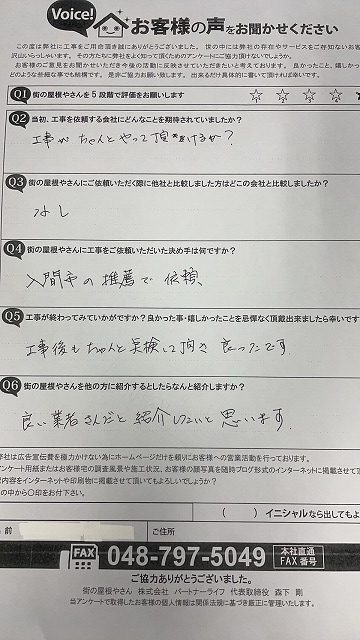 Voice! お客様の声をお聞かせください
この度は弊社に工事をご用命頂き誠にありがとうございました。世の中には弊社の存在やサービスをご存知ないお客
沢山いらっしゃいます。その方たちに弊社をよく知って頂くためのアンケートにご協力頂けないでしょうか。
お客様のご意見をお聞かせいただき今後の活動に反映させていただきたいと考えております。良かったこと、嬉しかっ
どのような些細な事でも結構です。是非ご協力お願い致します。出来るだけ具体的に書いて頂ければ幸いです。
Q1 街の屋根やさんを5段階で評価をお願いします ☆ ☆ ☆ ☆
Q2 当初、工事を依頼する会社にどんなことを期待されていましたか?
工事がちゃんとやって頂けるか?
Q3 街の屋根やさんにご依頼いただく際に他社と比較しました方はどこの会社と比較しましたか?
なし
Q4 街の屋根やさんに工事をご依頼いただいた決め手は何ですか?
入間市の推薦で依頼
Q5 工事が終わってみていかがですか?良かった事・嬉しかったことを忌憚なく頂戴出来ましたら幸いです
工事後もちゃんと点検して頂き良ったです
Q6 街の屋根やさんを他の方に紹介するとしたらなんと紹介しますか?
良い業者さんだと紹介したいと思います
弊社は広告宣伝費を極力かけない為にホームページだけを頼りにお客様への営業活動を行っております。
アンケート用紙またはお客様宅の調査風景や施工状況、お客様の顔写真を随時ブログ形式のインターネットに掲載させて頂
内容をインターネットや印刷物に掲載させて頂いてもよろしいでしょうか?
の中から〇印をお付下さい。
( ) イニシャルなら出してもよ
前 ご住所
FAX 048-797-5049 本社直通 FAX番号
ご協力ありがとうございました。
街の屋根やさん 株式会社 パートナーライフ 代表取締役 森下 剛
当アンケートで取得したお客様の個人情報は関係法規に基づき厳正に管理いたします。